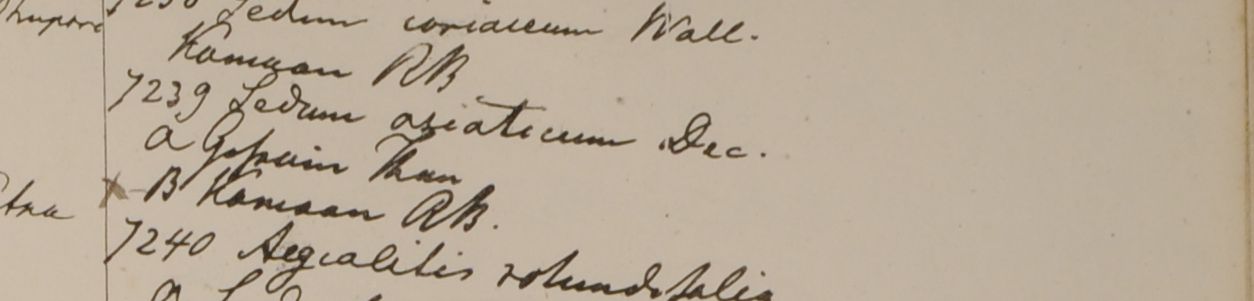 7238 Sedum coriaceum Wall.
Kamaon RB
7239 Sedum asiaticum Dec.
a Gossain Than
B Kamaon RB.
7240 Aegialitis rotundifolia